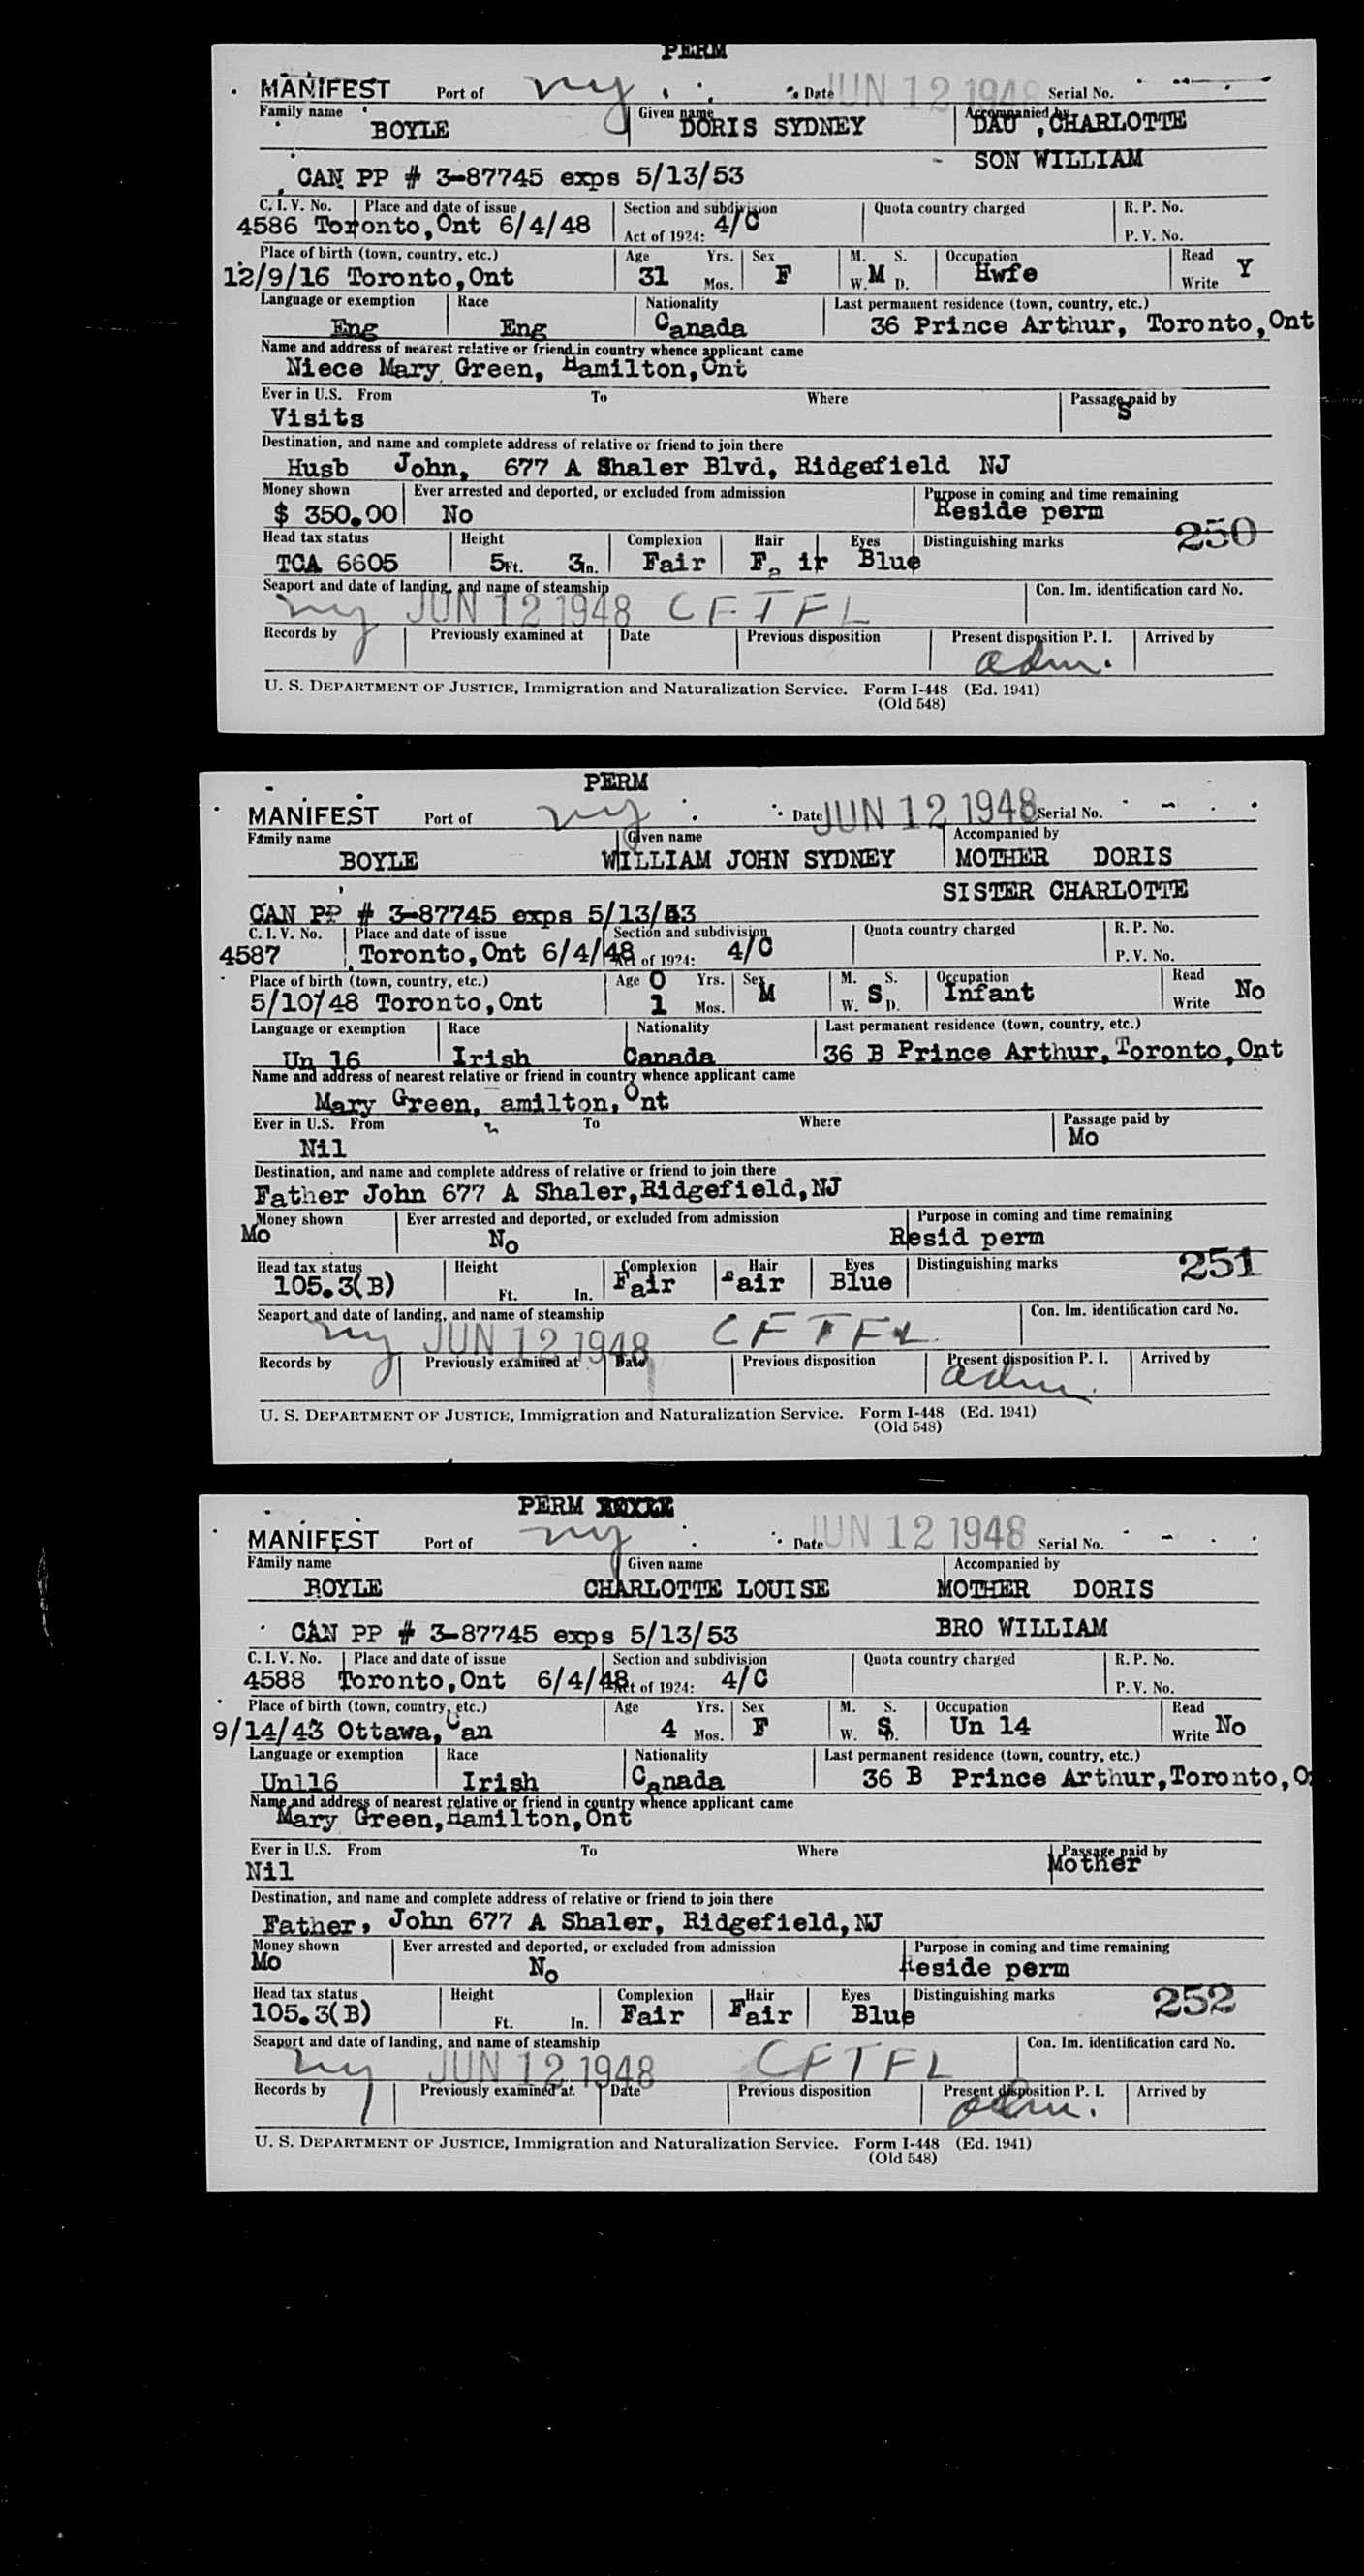 PERM
MANIFEST Port of ny Date JUN 12 1948 Serial No.
Family name Given name Accompanied by
BOYLE DORIS SYDNEY DAU , CHARLOTTE
SON WILLIAM
CAN PP # 3-87745 exps 5/13/53
C. I. V. No. Place and date of issue Section and subdivision Quota country charged R. P. No.
4586 Toronto,Ont 6/4/48 Act of 1924: 4/C P. V. No.
Place of birth (town, country, etc.) Age Yrs. Sex M. S. Occupation Read
12/9/16 Toronto,Ont 31 Mos. F W. M D. Hwfe Write Y
Language or exemption Race Nationality Last permanent residence (town, country, etc.)
Eng Eng Canada 36 Prince Arthur, Toronto,Ont
Name and address of nearest relative or friend in country whence applicant came
Niece Mary Green, Hamilton,Ont
Ever in U.S. From To Where Passage paid by
Visits S
Destination, and name and complete address of relative or friend to join there
Husb John, 677 A Shaler Blvd, Ridgefield NJ
Money shown Ever arrested and deported, or excluded from admission Purpose in coming and time remaining
$ 350.00 No Reside perm
250
Head tax status Height Complexion Hair Eyes Distinguishing marks
TCA 6605 5 Ft. 3 In. Fair Fa ir Blue
Seaport and date of landing, and name of steamship Con. Im. identification card No.
ny JUN 12 1948 CFTFL
Records by Previously examined at Date Previous disposition Present disposition P. I. Arrived by
adm.
U. S. DEPARTMENT OF JUSTICE, Immigration and Naturalization Service. Form I-448 (Ed. 1941)
(Old 548)
PERM
MANIFEST Port of ny Date JUN 12 1948 Serial No.
Family name Given name Accompanied by
BOYLE WILLIAM JOHN SYDNEY MOTHER DORIS
SISTER CHARLOTTE
CAN PP # 3-87745 exps 5/13/53
C. I. V. No. Place and date of issue Section and subdivision Quota country charged R. P. No.
4587 Toronto,Ont 6/4/48 Act of 1924: 4/C P. V. No.
Place of birth (town, country, etc.) Age 0 Yrs. Sex M. S. Occupation Read
5/10/48 Toronto,Ont 1 Mos. M W. S D. Infant Write No
Language or exemption Race Nationality Last permanent residence (town, country, etc.)
Un 16 Irish Canada 36 B Prince Arthur,Toronto,Ont
Name and address of nearest relative or friend in country whence applicant came
Mary Green, amilton,Ont
Ever in U.S. From To Where Passage paid by
Nil Mo
Destination, and name and complete address of relative or friend to join there
Father John 677 A Shaler,Ridgefield,NJ
Money shown Ever arrested and deported, or excluded from admission Purpose in coming and time remaining
Mo No Resid perm
251
Head tax status Height Complexion Hair Eyes Distinguishing marks
105.3(B) Ft. In. Fair Fair Blue
Seaport and date of landing, and name of steamship Con. Im. identification card No.
ny JUN 12 1948 CFTFL
Records by Previously examined at Date Previous disposition Present disposition P. I. Arrived by
adm.
U. S. DEPARTMENT OF JUSTICE, Immigration and Naturalization Service. Form I-448 (Ed. 1941)
(Old 548)
PERM
MANIFEST Port of ny Date JUN 12 1948 Serial No.
Family name Given name Accompanied by
BOYLE CHARLOTTE LOUISE MOTHER DORIS
BRO WILLIAM
CAN PP # 3-87745 exps 5/13/53
C. I. V. No. Place and date of issue Section and subdivision Quota country charged R. P. No.
4588 Toronto,Ont 6/4/48 Act of 1924: 4/C P. V. No.
Place of birth (town, country, etc.) Age Yrs. Sex M. S. Occupation Read
9/14/43 Ottawa,Can 4 Mos. F W. S D. Un 14 Write No
Language or exemption Race Nationality Last permanent residence (town, country, etc.)
Un116 Irish Canada 36 B Prince Arthur,Toronto,O
Name and address of nearest relative or friend in country whence applicant came
Mary Green,Hamilton,Ont
Ever in U.S. From To Where Passage paid by
Nil Mother
Destination, and name and complete address of relative or friend to join there
Father, John 677 A Shaler, Ridgefield,NJ
Money shown Ever arrested and deported, or excluded from admission Purpose in coming and time remaining
Mo No Reside perm
252
Head tax status Height Complexion Hair Eyes Distinguishing marks
105.3(B) Ft. In. Fair Fair Blue
Seaport and date of landing, and name of steamship Con. Im. identification card No.
ny JUN 12 1948 CFTFL
Records by Previously examined at Date Previous disposition Present disposition P. I. Arrived by
adm.
U. S. DEPARTMENT OF JUSTICE, Immigration and Naturalization Service. Form I-448 (Ed. 1941)
(Old 548)